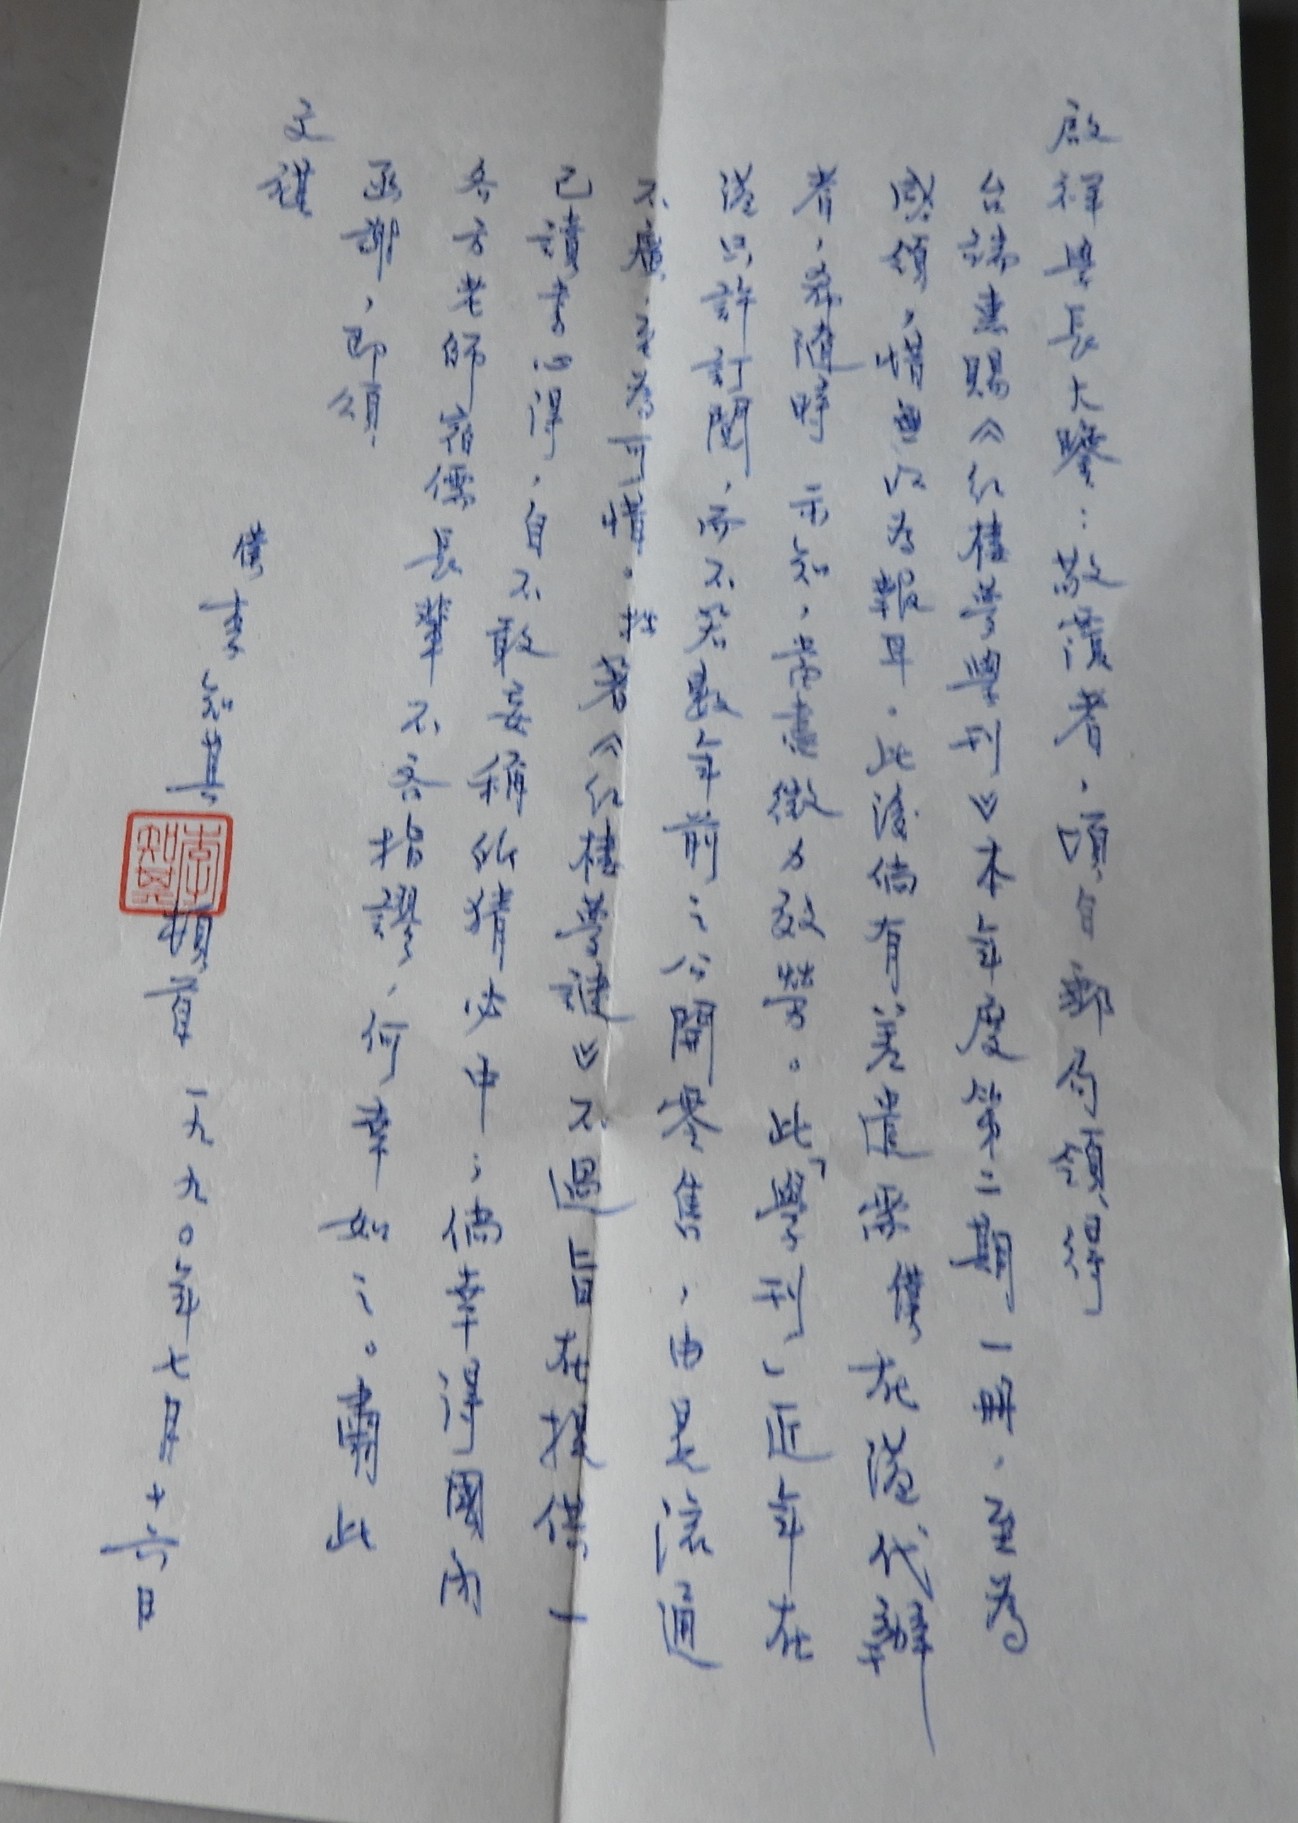 啟祥學長大鑒：敬覆者，頃自郵局領得
台端惠賜《紅樓夢學刊》本年度第二期一冊，至為
感領，惜無以為報耳。此後倘有差遣需僕在港代辦
者，希隨時示知，當盡微力效勞。此「學刊」近年在
港只許訂閱，而不若數年前之公開零售，由是流通
不廣，至為可惜。拙著《紅樓夢謎》不過旨在提供一
己讀書心得，自不敢妄稱所猜必中；倘幸得國內
各方老師宿儒長輩不吝指謬，何幸如之。肅此
函謝，即頌
文祺
僕李知其頓首 一九九〇年七月十六日
李知其